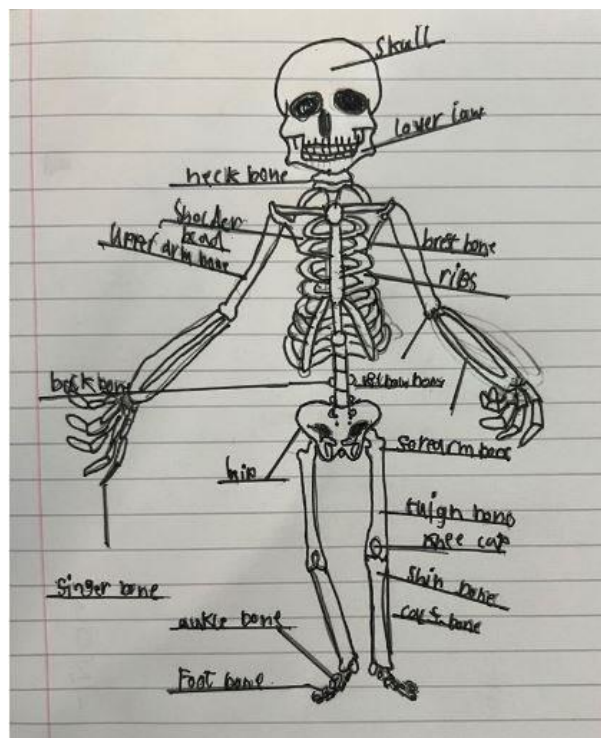 skull
lower jaw
neck bone
Sholder
blad
upper arm bone
brest bone
ribs
back bone
elbow bone
sorearm bone
hip
thign bone
knee cap
singer bone
shin bone
cays bone
ankle bone
Foot bone